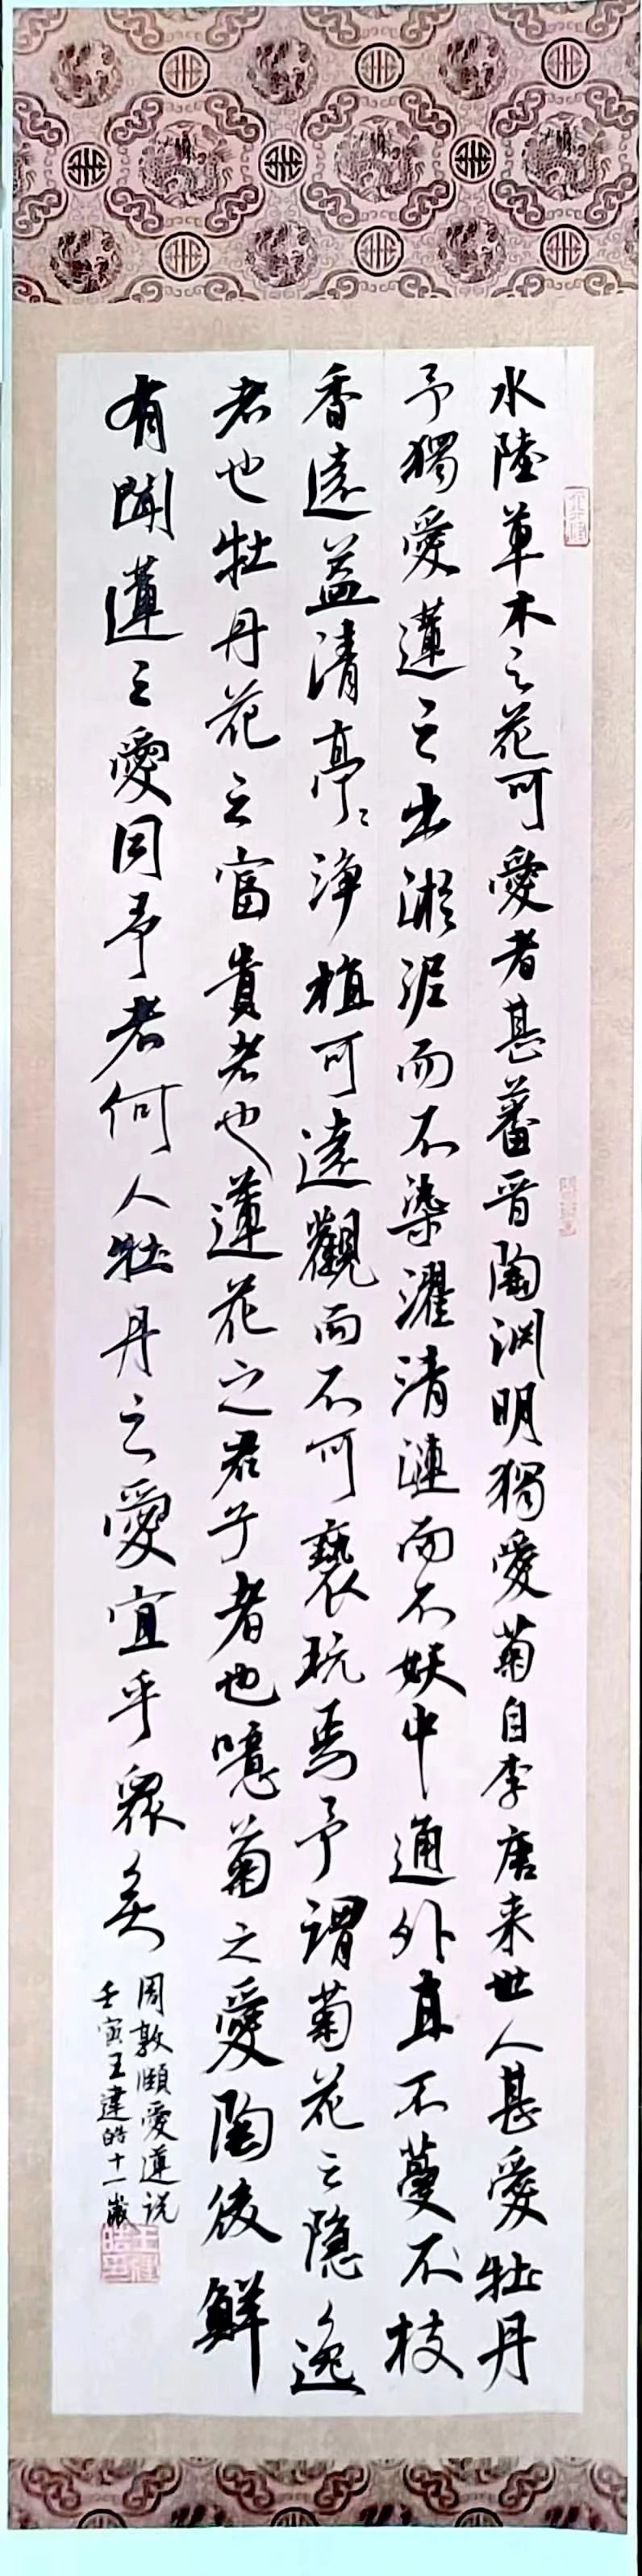 水陸草木之花可愛者甚蕃晋陶渊明獨愛菊自李唐来世人甚愛牡丹
予獨愛蓮之出淤泥而不染濯清漣而不妖中通外直不蔓不枝
香遠益清亭〻淨植可遠觀而不可褻玩焉予謂菊花之隐逸
者也牡丹花之富貴者也蓮花之君子者也噫菊之愛陶後鮮
有聞蓮之愛同予者何人牡丹之愛宜乎眾矣
周敦頤愛蓮说
壬寅王建皓十一歲